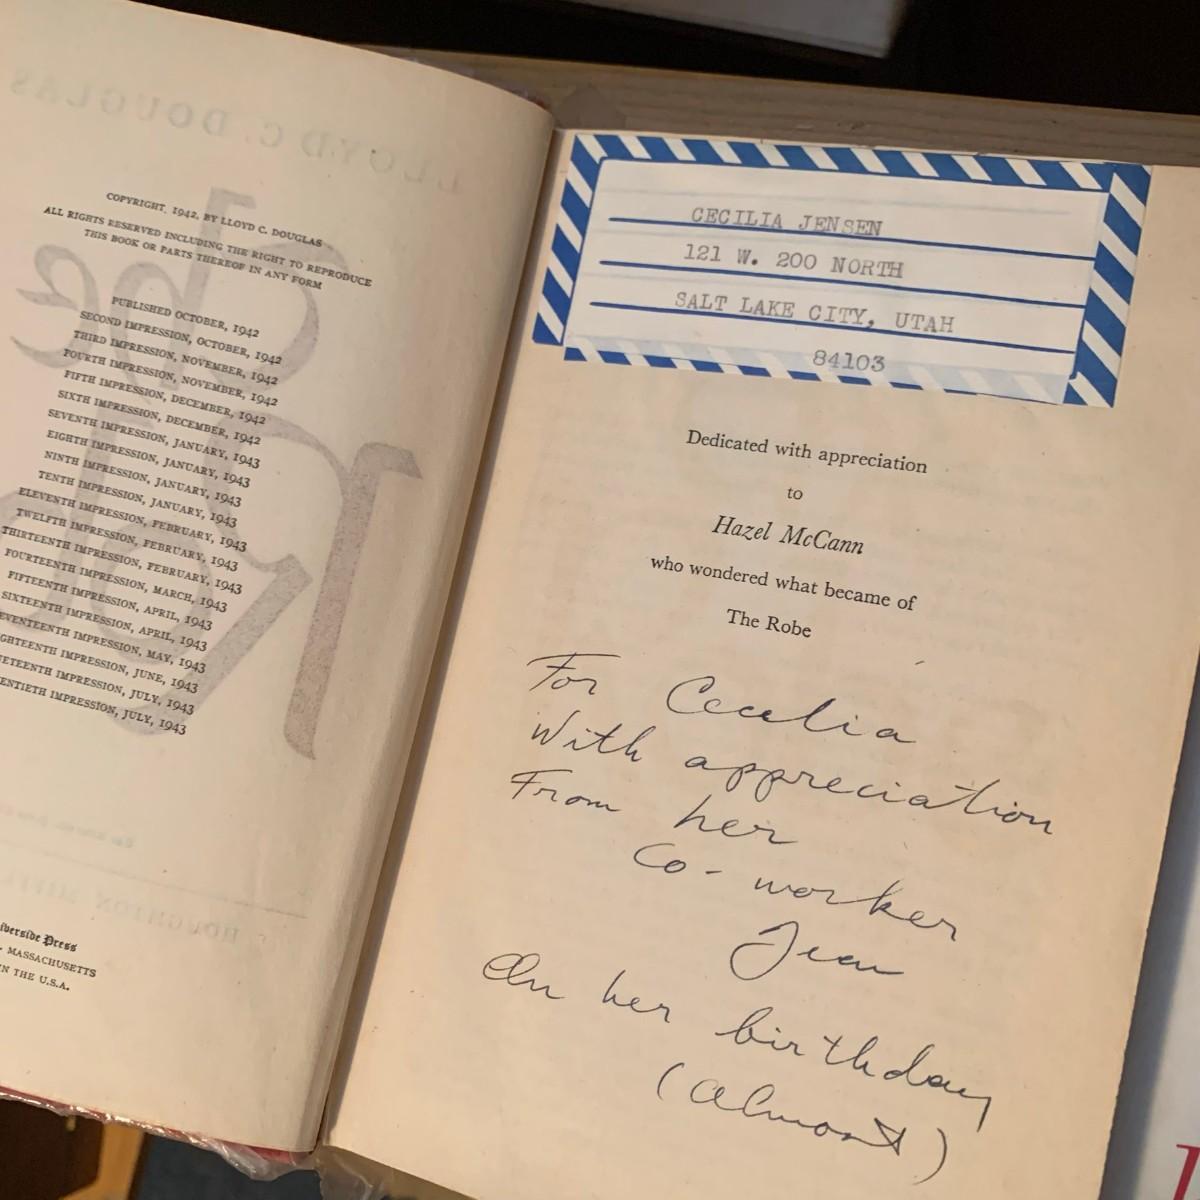 LLOYD C. DOUGLAS
The
Robe
COPYRIGHT, 1942, BY LLOYD C. DOUGLAS
ALL RIGHTS RESERVED INCLUDING THE RIGHT TO REPRODUCE
THIS BOOK OR PARTS THEREOF IN ANY FORM
PUBLISHED OCTOBER, 1942
SECOND IMPRESSION, OCTOBER, 1942
THIRD IMPRESSION, NOVEMBER, 1942
FOURTH IMPRESSION, NOVEMBER, 1942
FIFTH IMPRESSION, DECEMBER, 1942
SIXTH IMPRESSION, DECEMBER, 1942
SEVENTH IMPRESSION, JANUARY, 1943
EIGHTH IMPRESSION, JANUARY, 1943
NINTH IMPRESSION, JANUARY, 1943
TENTH IMPRESSION, JANUARY, 1943
ELEVENTH IMPRESSION, FEBRUARY, 1943
TWELFTH IMPRESSION, FEBRUARY, 1943
THIRTEENTH IMPRESSION, FEBRUARY, 1943
FOURTEENTH IMPRESSION, MARCH, 1943
FIFTEENTH IMPRESSION, APRIL, 1943
SIXTEENTH IMPRESSION, APRIL, 1943
EVENTEENTH IMPRESSION, MAY, 1943
GHTEENTH IMPRESSION, JUNE, 1943
ETEENTH IMPRESSION, JULY, 1943
ENTIETH IMPRESSION, JULY, 1943
HOUGHTON
iverside Press
MASSACHUSETTS
N THE U.S.A.
CECILIA JENSEN
121 W. 200 NORTH
SALT LAKE CITY, UTAH
84103
Dedicated with appreciation
to
Hazel McCann
who wondered what became of
The Robe
For Cecelia
With appreciation
From her
Co-worker
Jean
On her birthday
(almost)